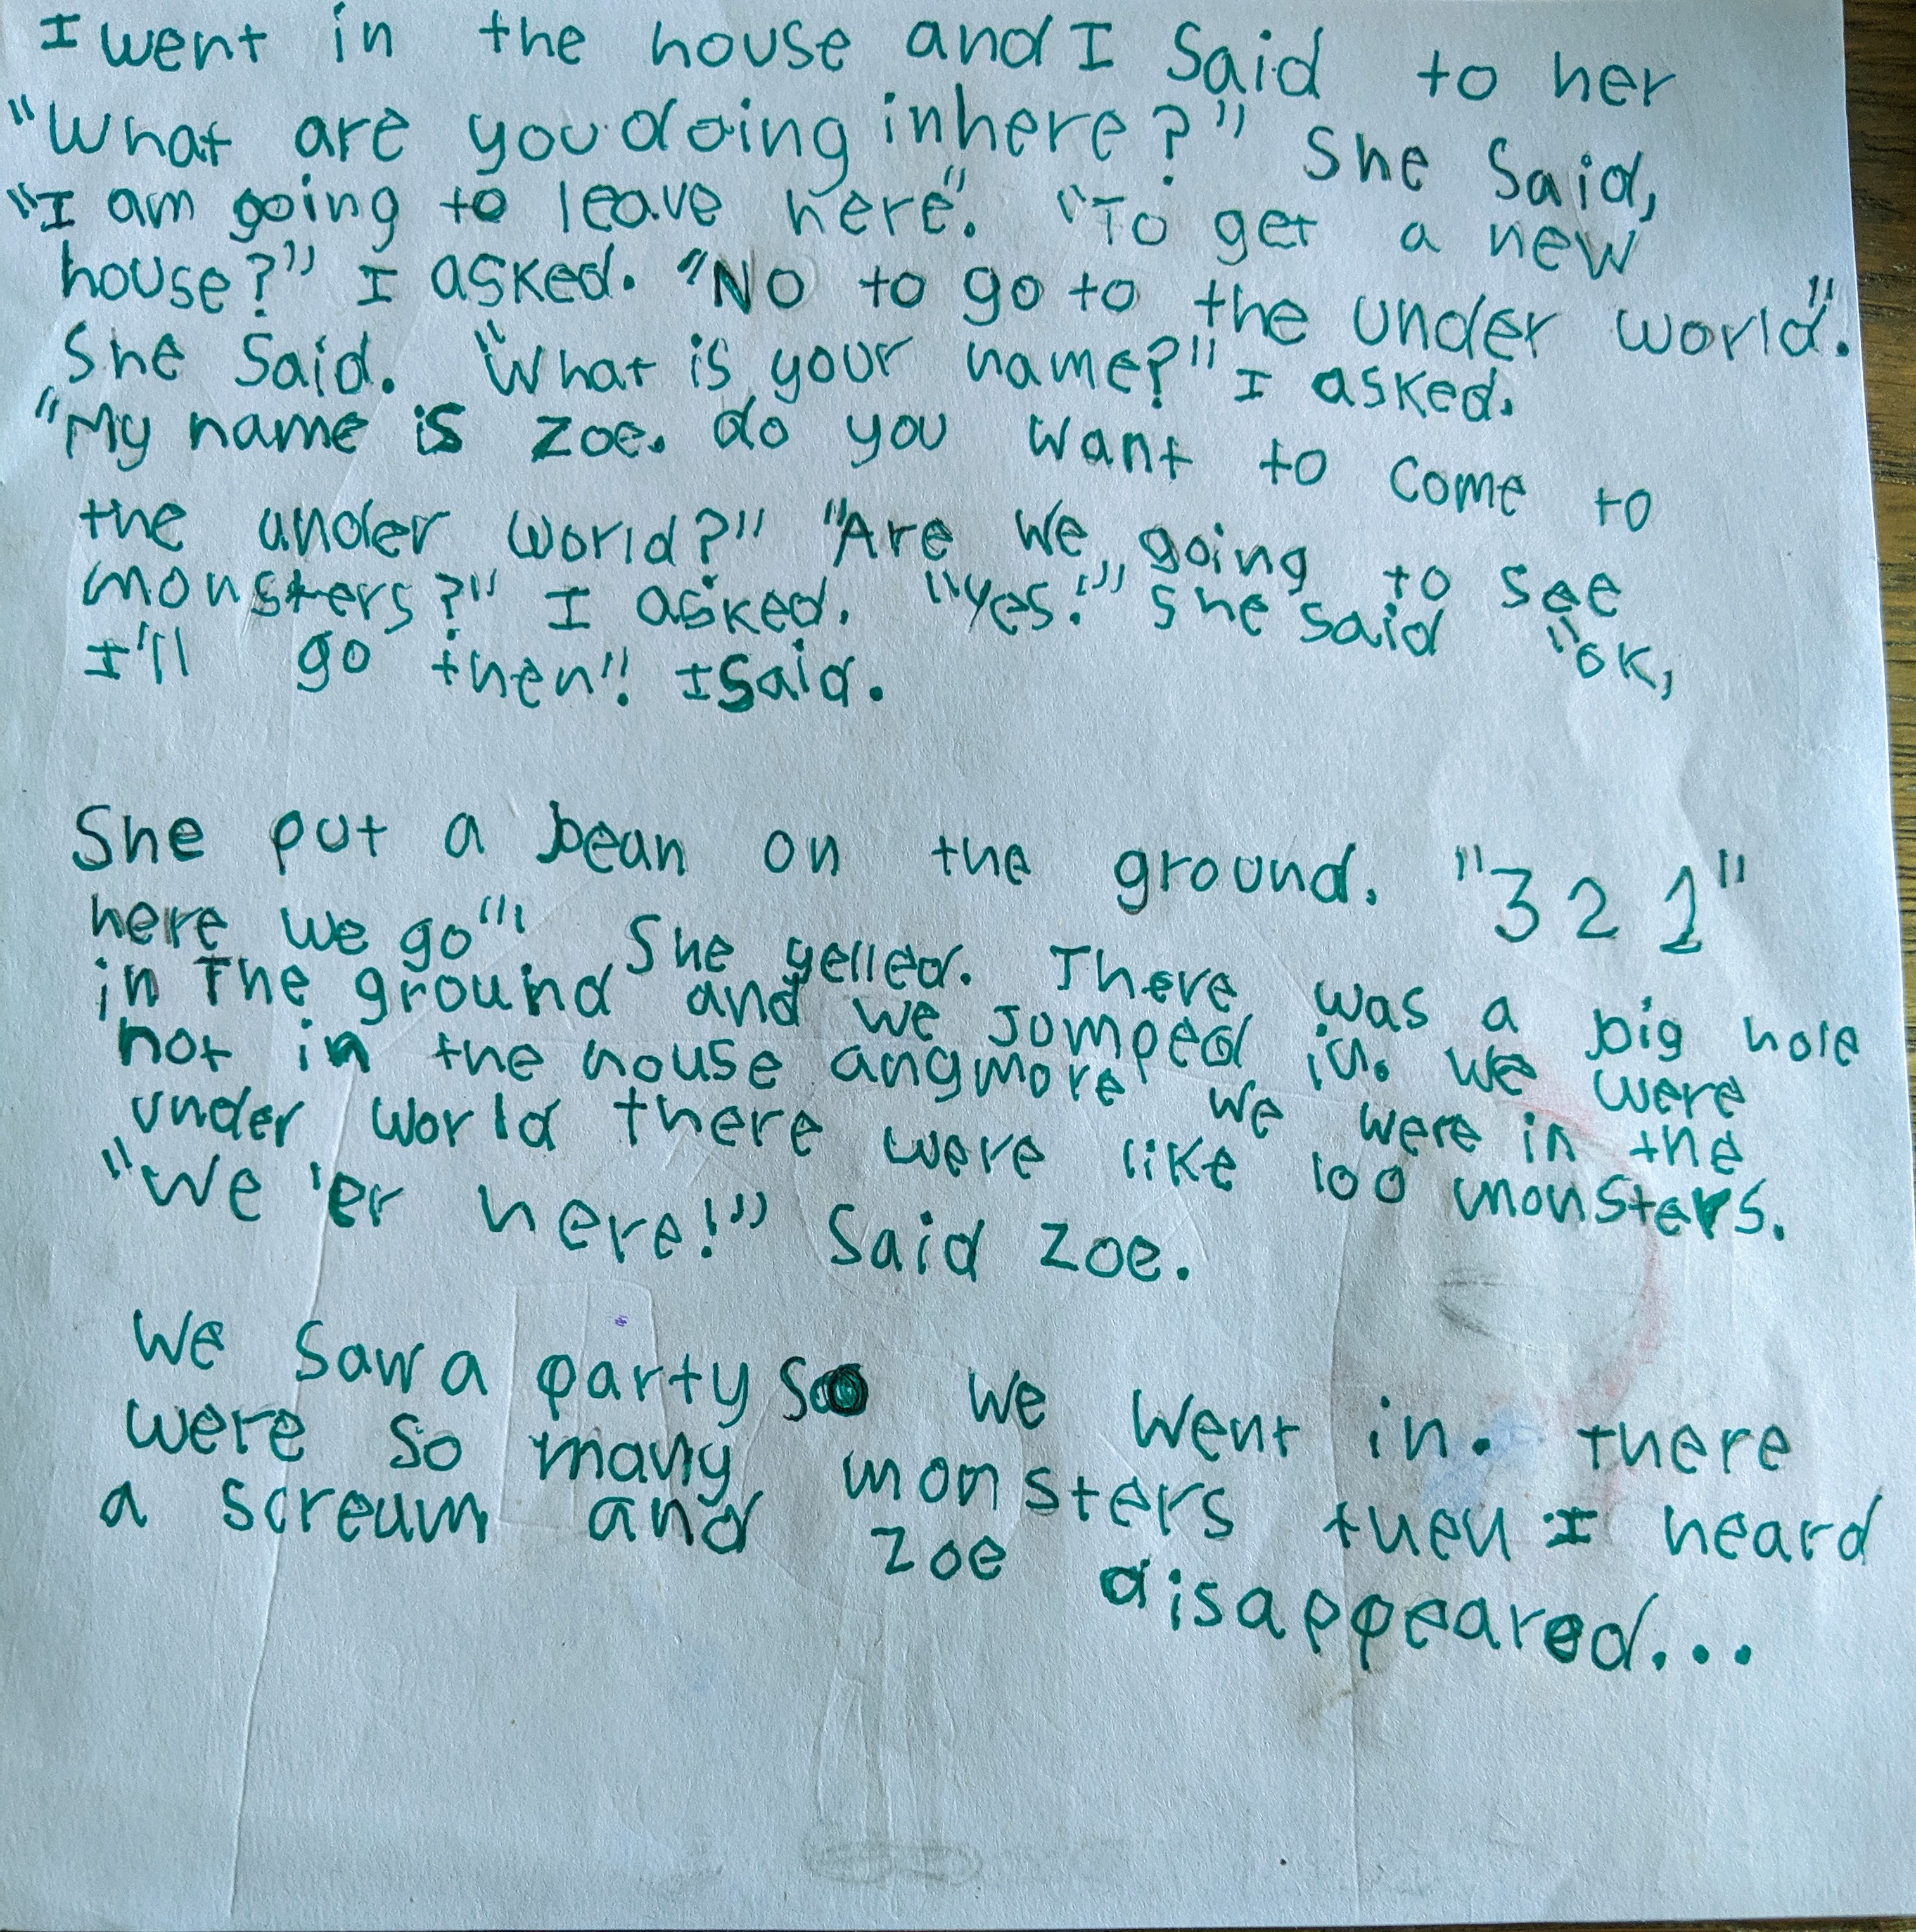 I went in the house and I Said to her
"What are you doing in here?" She Said,
"I am going to leave here". "To get a new
house?" I asked. "No to go to the under world".
She Said. "What is your name?" I asked.
"My name is Zoe. do you want to come to
the under world?" "Are we going to see
monsters?" I asked. "Yes!" She said "ok,
I'll go then"! I Said.
She put a bean on the ground. "3 2 1"
here we go"! She yelled. There was a big hole
in The ground and we Jumped in. We were
not in the house angmore we were in the
under world there were like 100 monsters.
"We'er here!" Said Zoe.
We Saw a party So we went in. there
were so many monsters then I heard
a scream and Zoe disappeared...